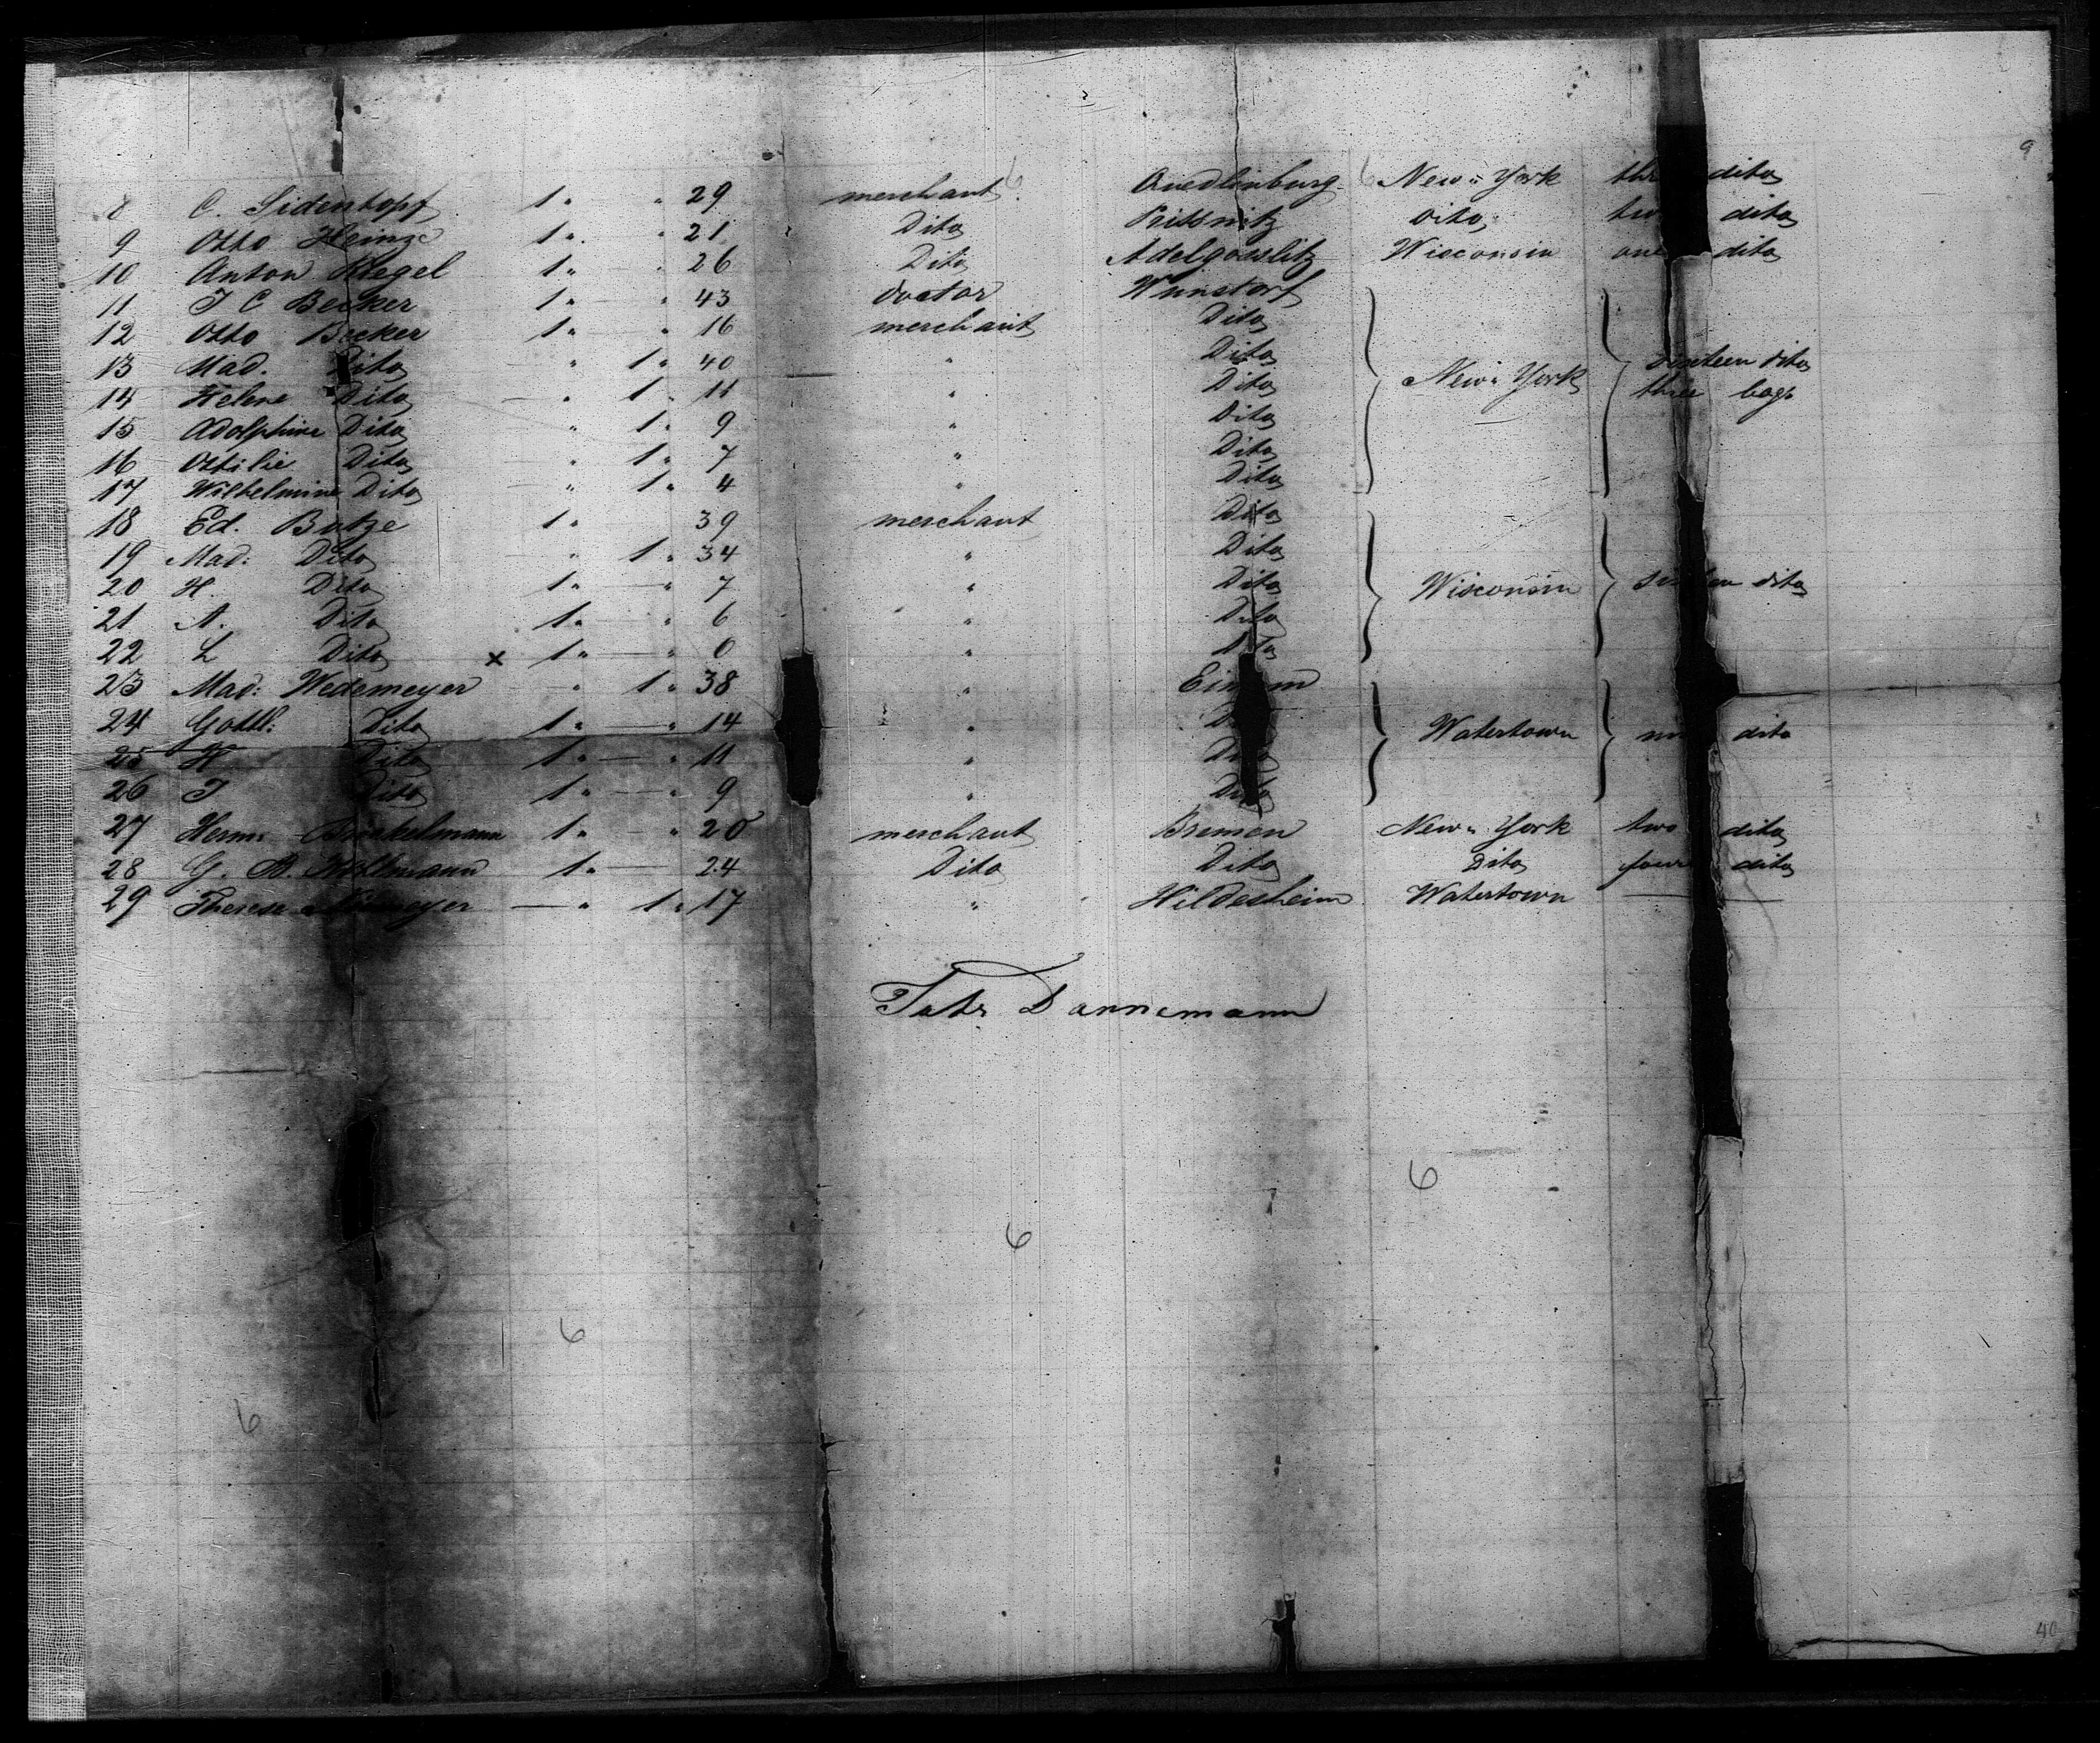 9
8 C. Sidentopf 1 " " 29 merchant Quedlinburg New-York dito
9 Otto Heinze 1 " " 21 Dito Prissnitz Dito two dito
10 Anton Riegel 1 " " 26 Dito Wisconsin one dito
11 J C Becker 1 " — " 43 doctor Wunstorf
12 Otto Becker 1 " — " 16 merchant Dito
13 Mad. Dito " 1 " 40 " Dito
14 Helene Dito — " 1 " 11 " Dito New-York dito
15 Adolphine Dito " 1 " 9 " Dito three bags
16 Ottilie Dito " 1 " 7 " Dito
17 Wilhelmine Dito — " 1 " 4 " Dito
18 Ed. Butze 1 " 39 merchant Dito
19 Mad: Dito — " 1 " 34 " Dito
20 H. Dito 1 " — " 7 " Dito Wisconsin dito
21 A. Dito 1 " — " 6 " Dito
22 L Dito x 1 " — " 0 " Dito
23 Mad: Wedemeyer — " 1 " 38 "
24 Gottl: Dito 1 " — " 14 " Dito Watertown dito
25 H Dito 1 " — " 11 " Dito
26 J Dito 1 " — " 9 " Dito
27 Herm: Brinkelmann 1 " — " 20 merchant Bremen New-York two dito
28 G. Holtmann 1 " — 24 Dito Dito Dito four dito
29 Therese — " 1 " 17 " Hildesheim Watertown —
Dannemann
6
6
6
6
40